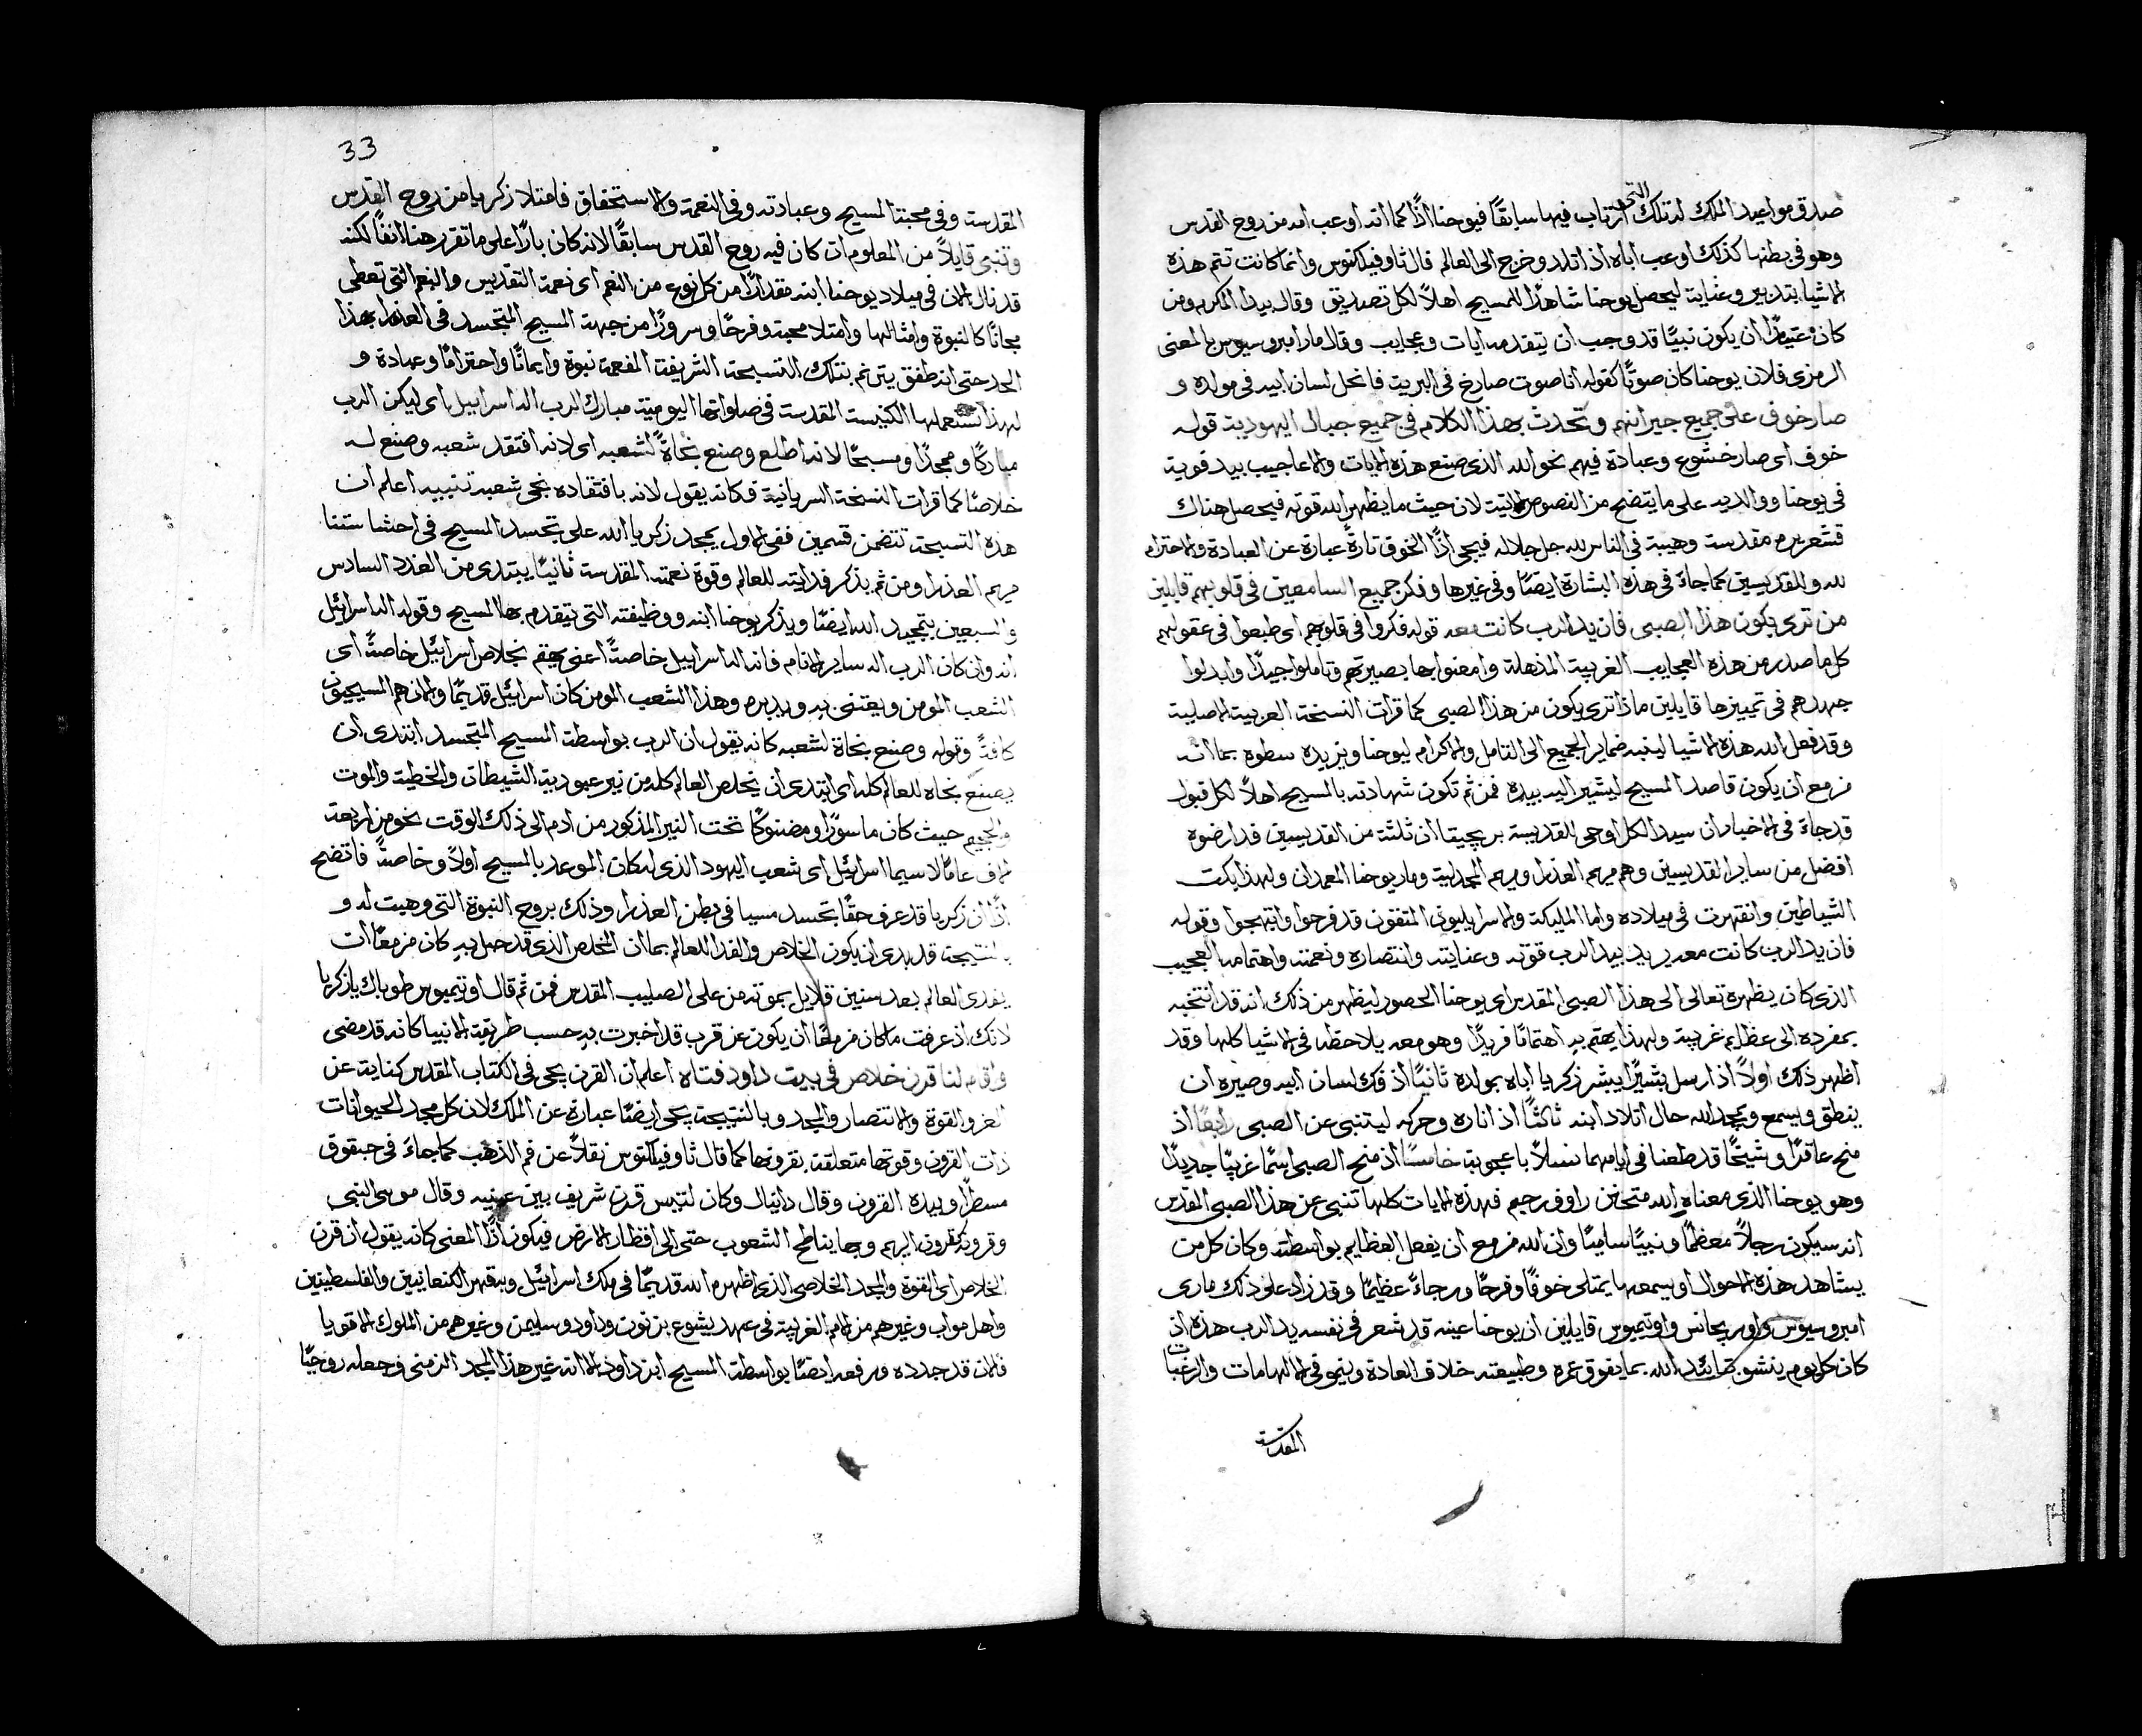 صدق مواعيد الملك له تلك التى ارتاب فيها سابقًا فيوحنا اذًا كما انه اوعب امه من روح القدس
وهو فى بطنها كذلك اوعب اباه اذ اتلد وخرج الى العالم قال ثاوفيلكتوس وانما كانت تتم هذه
الاشيا بتدبير وعناية ليحصل يوحنا شاهدًا للمسيح اهلاً لكل تصديق وقال بيدا المكرم ومن
كان عتيدًا ان يكون نبيًا قد وجب ان يتقدمه ايات وعجايب وقال مار امبروسيوس بالمعنى
الرمزى فلان يوحنا كان صوتًا كقوله انا صوت صارخ فى البرية فانحل لسان ابيه فى مولده و
صار خوف على جميع جيرانهم وتحدث بهذا الكلام فى جميع جبال اليهودية قوله
خوف اى صار خشوع وعبادة فيهم نحو الله الذى صنع هذه الايات والاعاجيب بيد قوية
فى يوحنا ووالديه على ما يتضح من النصوص الاتية لان حيث ما يظهر الله قوته فيحصل هناك
قشعريره مقدسة وهيبة فى الناس لله جل جلاله فيجى اذًا الخوف تارةً عبارة عن العبادة والاحترام
لله وللقديسين كما جاءَ فى هذه البشارة ايضًا وفى غيرها وفكر جميع السامعين فى قلوبهم قايلين
من ترى يكون هذا الصبى فان يد الرب كانت معه قوله فكروا فى قلوبهم اى طبعوا فى عقولهم
كل ما صدر من هذه العجايب الغريبة المذهلة وامعنوا بها بصيرتهم وتاملوا جيدًا وابدلوا
جهدهم فى تمييزها قايلين ماذا ترى يكون من هذا الصبى كما قرات النسخة العربية الاصلية
وقد فعل الله هذه الاشيا لينبه ضماير الجميع الى التامل والاكرام ليوحنا ويزيده سطوه بما انه
مزمع ان يكون قاصد المسيح ليشير اليه بيده فمن ثم تكون شهادته بالمسيح اهلاً لكل قبول
قد جاءَ فى الاخبار ان سيد الكل اوحى للقديسة بريجيتا ان ثلثة من القديسين قد ارضوه
افضل من ساير القديسين وهم مريم العذرا ومريم المجدلية ومار يوحنا المعمدان ولهذا بكت
الشياطين وانقهرت فى ميلاده واما المليكة والاسراييليون المتقون قد فرحوا وابتهجوا وقوله
فان يد الرب كانت معه يريد بيد الرب قوته وعنايته وانتصاره ونعمته واهتمامه العجيب
الذى كان يظهره تعالى الى هذا الصبى المقدس اى يوحنا الحصور ليظهر من ذلك انه قد انتخبه
بمفرده الى عظايم غريبة ولهذا يهتم به اهتمامًا فريدًا وهو معه يلاحظه فى الاشيا كلها وقد
اظهر ذلك اولاً اذ ارسل بشيرًا يبشر زكريا اباه بمولده ثانيًا اذ فك لسان ابيه وصيره ان
ينطق ويسمع ويمجد الله حال اتلاد ابنه ثالثًا اذ اناره وحركه ليتنبى عن الصبى رابعًا اذ
منح عاقرًا وشيخًا قد طعنا فى ايامهما نسلاً باعجوبة خامسًا اذ منح الصبى اسمًا غريبًا جديدًا
وهو يوحنا الذى معناه الله متحنن راووف رحيم فهذه الايات كلها تنبى عن هذا الصبى المقدس
انه سيكون رجلاً معظمًا ونبيًا ساميًا وان الله مزمع ان يفعل العظايم بواسطته وكان كل من
يشاهد هذه الاحوال او يسمعها يمتلى خوفًا وفرحًا ورجاءً عظيمًا وقد زاد على ذلك مارى
امبروسيوس واوريجانس واوتيميوس قايلين ان يوحنا عينه قد شعر فى نفسه يد الرب هذه اذ
كان كل يوم ينشو بتائيد الله بما يفوق عمره وطبيعته خلاف العادة وينمو فى الالهامات والرغبات
المقدسة
33
المقدسة وفى محبة المسيح وعبادته وفى النعمة والاستحقاق فامتلا زكريا من روح القدس
وتنبى قايلاً من المعلوم ان كان فيه روح القدس سابقًا لانه كان بارًا على ما تقرر هنا انفًا لكنه
قد نال الان فى ميلاد يوحنا ابنه مقدارًا من كل نوع من النعم اى نعمة التقديس والنعم التى تعطى
مجانًا كالنبوة وامثالها وامتلا محبة وفرحًا وسرورًا من جهة المسيح المتجسد فى العذرا بهذا
الحد حتى انه طفق يترنم بتلك التسبحة الشريفة المفعمة نبوة وايمانًا واحترامًا وعبادة و
لهذا تستعملها الكنيسة المقدسة فى صلواتها اليومية مبارك الرب اله اسراييل اى ليكن الرب
مباركًا وممجدًا ومسبحًا لانه اطلع وصنع نجاةً لشعبه اى لانه افتقد شعبه وصنع له
خلاصًا كما قرات النسخة السريانية فكانه يقول لانه بافتقاده نجى شعبه تنبيه اعلم ان
هذه التسبحة تتضمن قسمين ففى الاول يمجد زكريا الله على تجسد المسيح فى احشا ستنا
مريم العذرا ومن ثم يذكر فدايته للعالم وقوة نعمته المقدسة ثانيًا يبتدى من العدد السادس
والسبعين بتمجيد الله ايضًا ويذكر يوحنا ابنه ووظيفته التى يتقدم بها المسيح وقوله اله اسرائيل
انه وان كان الرب اله ساير الانام فانه اله اسراييل خاصةً اعنى يهتم بخلاص اسرائيل خاصةً اى
الشعب المومن ويعتنى به ويدبره وهذا الشعب المومن كان اسرائيل قديمًا والان هم المسيحيون
كافةً وقوله وصنع نجاة لشعبه كانه يقول ان الرب بواسطة المسيح المتجسد ابتدى ان
يصنع نجاه للعالم كله اى ابتدى ان يخلص العالم كله من نير عبودية الشيطان والخطية والموت
والجحيم حيث كان ماسورًا ومضنوكًا تحت النير المذكور من ادم الى ذلك الوقت نحو من اربعة
الاف عامًا لا سيما اسرائيل اى شعب اليهود الذى له كان الموعد بالمسيح اولاً وخاصةً فاتضح
اذًا ان زكريا قد عرف حقًا بتجسد مسيا فى بطن العذرا وذلك بروح النبوة التى وهبت له و
بالنتيجة قد بدى ان يكون الخلاص والفدا للعالم بما ان المخلص الذى قد حبل به كان مزمعًا ان
يفدى العالم بعد سنين قلايل بموته من على الصليب المقدس فمن ثم قال اوتيميوس طوباك يا زكريا
لانك اذ عرفت ما كان مزمعًا ان يكون عن قرب قد اخبرت به حسب طريقة الانبيا كانه قد مضى
واقام لنا قرن خلاص فى بيت داود فتاه اعلم ان القرن يجى فى الكتاب المقدس كناية عن
العز والقوة والانتصار والمجد وبالنتيجة يجى ايضًا عبارة عن الملك لان كل مجد الحيوانات
ذات القرون وقوتها متعلقة بقرونها كما قال ثاوفيلكتوس نقلاً عن فم الذهب كما جاءَ فى حبقوق
مسطرًا وبيده القرون وقال دانيال وكان لتيس قرن شريف بين عينيه وقال موسى النبى
وقرونه كقرون الريم وبها يناطح الشعوب حتى الى اقطار الارض فيكون اذًا المعنى كانه يقول ان قرن
الخلاص اى القوة والمجد الخلاصى الذى اظهره الله قديمًا فى ملك اسرائيل وبقهر الكنعانيين والفلسطينين
واهل مواب وغيرهم من الامم الغريبة فى عهد يشوع بن نون وداود وسليمن وغيرهم من الملوك الاقويا
فالان قد جدده ورفعه ايضًا بواسطة المسيح ابن داود الا انه غير هذا المجد الزمنى وجعله روحيًا